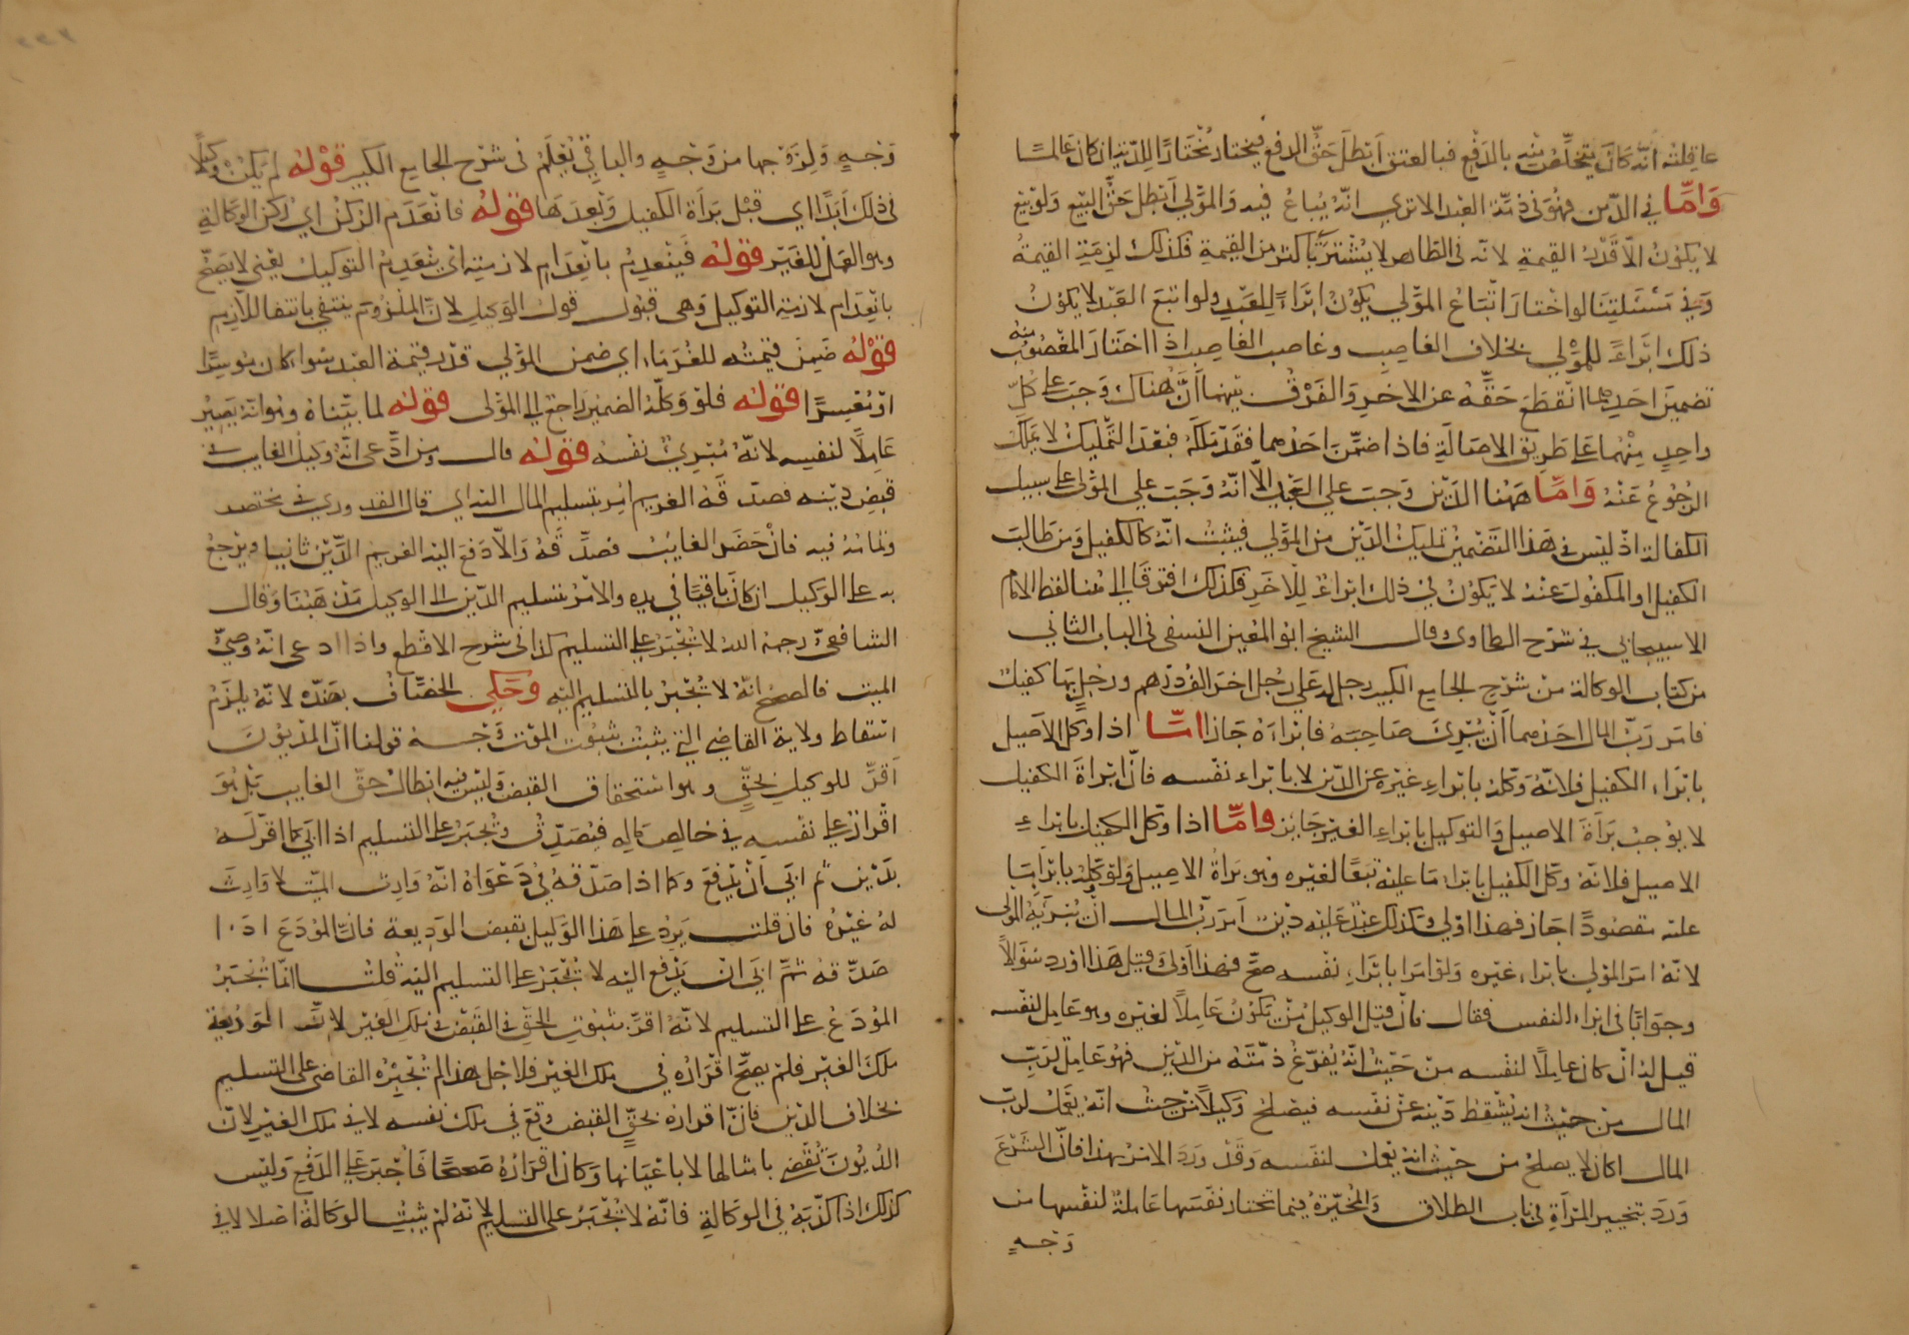 عاقلته انّه كان يتخلّص منه بالدفع فبالعتق ابطل حقّ الدفع فيختار مختارًا للدية ان كان عالمًا
وَامّا في الدّين فهو في ذمّة العبد الا ترى انّه يُباعُ فيه وَالمَوْلى ابطل حقّ البيع وَلو بيع
لا يكونُ الّا قدْرُ القيمةِ لانّه في الظاهر لا يُشترَى باكثر من القيمةِ فلذلك لزمته القيمةُ
وَفي مَسْئلتِنا لو اختارَ اتّباعُ المَوْلى يكوُنُ ابراءً لِلعَبْدِ ولو اتبعَ العَبْد لا يكوُنُ
ذلك ابراءً للمَوْلي بخلاف الغاصِبِ وغاصب الغاصِب اذا اختارَ المغصُوبُ منه
تضمينَ احَدِهما انقطعَ حَقّهُ عن الاخرِ وَالفَرْقُ بينهما انَّ هُناك وَجبَ على كلّ
واحِدٍ مِنهُما على طَريق الاصَالَةِ فاذا ضمَّنَ احَدَهما فقَدْ مَلّكهُ فبَعْدَ التّمليك لا يملك
الرُجُوعُ عَنْهُ وَامّا هَهُنا الدَّيْن وَجبَ على العَبْدِ الّا انّهُ وَجَبَ على المَوْلى على سبيل
الكفالة اذْ ليْسَ في هَذا التَضْمينْ تمليكُ الدَّيْن من المَوْلى فيثبتُ انّهُ كالكفيل وَمَن طَالبَ
الكفيل او المكفول عَنْهُ لا يَكوُنُ في ذلِك ابراءٌ لِلاخَرِ فكذلك افترقا الى هُنا لفظ الامام
الاسبيجابي في شرْح الطحاوى وقال الشيخ ابو المُعين النسفى في الباب الثاني
من كتاب الوكالة منْ شرْحِ الجامع الكبير رجل لهُ على رجُل اخرَ الفُ درْهم ورجُل بها كفيل
فامَر رَبّ المال احَدَهما انْ يُبْرِئَ صَاحِبَهُ فابْراهُ جَازَ امّا اذا وكّل الاصيل
بابْراء الكفيل فلانّهُ وَكّلهُ بابْراءِ غيْره عن الدّين لا بابْراء نفْسه فانّ ابراةَ الكفيل
لا يوُجبْ بَراةَ الاصيل وَالتوكيل بابراءِ الغيْر جَايز وامّا اذا وكّل الكفيل بابراءِ
الاصيل فلانّهُ وكّل الكفيل بابراءِ مَا عليْه تبَعًا لغيْره وهو بَراةُ الاصيل وَلوْ وكّلهُ بابْراءِ مَا
عليْه مقصُودًا اجَاز فهذا اوْلى وَكذلك عبْد عَليْه ديْن امَر رَبُّ المال انْ يُبْرِئَه المَوْلى
لانّهُ امَر المَوْلى بابراءِ غيْره وَلوْ امَرا بابْراءِ نفْسه صحّ فهذا اوْلى وقيل هَذا اوْرد سُؤالًا
وجوابًا في ابراء النفس فقال فانْ قيل الوكيل مَنْ يكوُنُ عَامِلًا لغيْره وهو عَامِل لنفْسه
قيل لهُ انْ كانَ عَامِلًا لنفْسه منْ حَيْثُ انّهُ يُفرّغُ ذمّتَهُ من الدّين فهوَ عَامِل لِرَبّ
المال منْ حيْثُ انّهُ يُسْقطُ دَيْنه عنْ نفسه فيَصلحُ وَكيلًا منْ حيْثُ انّهُ يعْمل لربّ
المال وان كانَ لا يصلحُ من حيْثُ انهُ يعْمل لنفسه وَقدْ وَرَدَ الامرُ بهذا فانّ الشّرْعَ
وَرَدَ بتخيير المَرْاةِ في باب الطلاق وَالمُخيّرَةُ فيما تختار نفسَها عَاملةٌ لنفسها من
وَجْهٍ
وَجْهٍ وَلِزَوْجها من وَجْهٍ والباقِي يُعْلَمُ في شرْح الجامع الكبير قوْلهُ لم يَكنْ وكيلًا
في ذلك ابدًا اي قبْل بَرَاةِ الكفيل وَبَعْدَهَا قوْلهُ فانْعَدَم الرّكنُ اي رُكن الوكالةِ
وهو العَمل للغَيْر قوْلهُ فيَنْعدِمُ بانْعِدَامِ لازمِهِ اي ينْعَدِمُ التوكيل يعْني لا يَصحّ
بانْعِدَام لازمِهِ التوكيل وَهي قبُول قول الوَكيلِ لانّ المَلزُومَ ينتفي بانتفا اللّازِمِ
قوْلُهُ ضَمِنَ قيمتُه للغُرَمَاءِ اي ضمن المَوْلى قدْر قيمة العَبد سَوا كان مُوسِرًا
اوْ مُعْسِرًا قوْلهُ فلوْ وَكّلهُ الضمير رَاجِع الى المَوْلى قوْلهُ لما بيّناهُ وهو انّهُ يَصِيرُ
عَامِلًا لنفسِه لانّهُ مُبْرِئُ نفْسَه قوْلهُ قال وَمَن ادّعى انّهُ وَكيلُ الغايب في
قبضِ دَيْنِه فصدّقَهُ الغريم امِرَ بتسليم المال اليه اي قال القدوري في مختصره
وتمامُهُ فيه فانْ حَضَر الغايبُ فصدّقهُ وَالّا دَفعَ اليْه الغريم الدّيْن ثانيا ويرْجعُ
به على الوَكيل ان كانَ باقيًا في يده والامْرُ بتسليم الدّين الى الوكيل مَذْهَبُنا وَقال
الشافعيّ رحمهُ اللهُ لا يُجْبَرُ على التسليم كذا في شرح الاقطع واذا ادعى انّهُ وَصيّ
الميت فالصحيح انّهُ لا يُجْبَرُ بالتسليم اليْه وحَكى الخصّافُ بعَبْده لانّهُ يلزَمُ
اسْقاط ولاية القاضى التي يثبتُ بثبُوتِ الموْت وَجْه قولنا انّ المدْيُونَ
اقرَّ للوكيلِ بحَقٍّ وهو استحقاقُ القبضِ وَليْسَ فيه ابطالُ حَقّ الغايب بَلْ هُوَ
اقرارٌ على نفْسِه في خالِصِ مَالِه فيُصَدّقُ وَيُجْبَرُ على التسليم اذا ابَى كما اقرّ لهُ
بدَيْن ثم ابَى انْ يدْفعَ وكما اذا صَدّقهُ في دَعْوَاهُ انّهُ وَارِثُ الميّت لا وَارِثَ
لهُ غيْرُهُ فانْ قلتَ يَردُ على هَذا الوَكيلِ بقبض الوَدِيعة فانّ المُوْدَعَ اذا
صَدّقهُ ثمَّ ابَى انْ يدْفع اليْه لا يُجْبَرُ على التسليم اليْه قُلتُ انّما يُجْبَرُ
المُوْدَعُ على التسليم لانّهُ اقرّ بثبُوتِ الحقِّ في القَبْض في مِلك الغيْر لانّ الوَدِيعَة
مِلكُ الغيْر فلمْ يَصِحّ اقرَارُه في مِلك الغيْر فلاجْل هذا لمْ يُجْبِرْهُ القاضى على التسليم
بخلاف الدّين فانّ اقرارهُ بحَقِّ القبض وقعَ في مِلك نفْسه لا في مِلك الغيْرِ لانّ
الدُّيُونَ تُقْضى بامثالها لا باعْيَانها وَكانَ اقرَارُهُ صَحيحًا فاُجْبِرَ على الدّفْعِ وَليْس
كذلك اذا كذّبَهُ في الوَكالةِ فانّهُ لا يُجْبَرُ على التسليم لانّهُ لمْ يثبُتِ الوَكالةُ اصْلا لا في